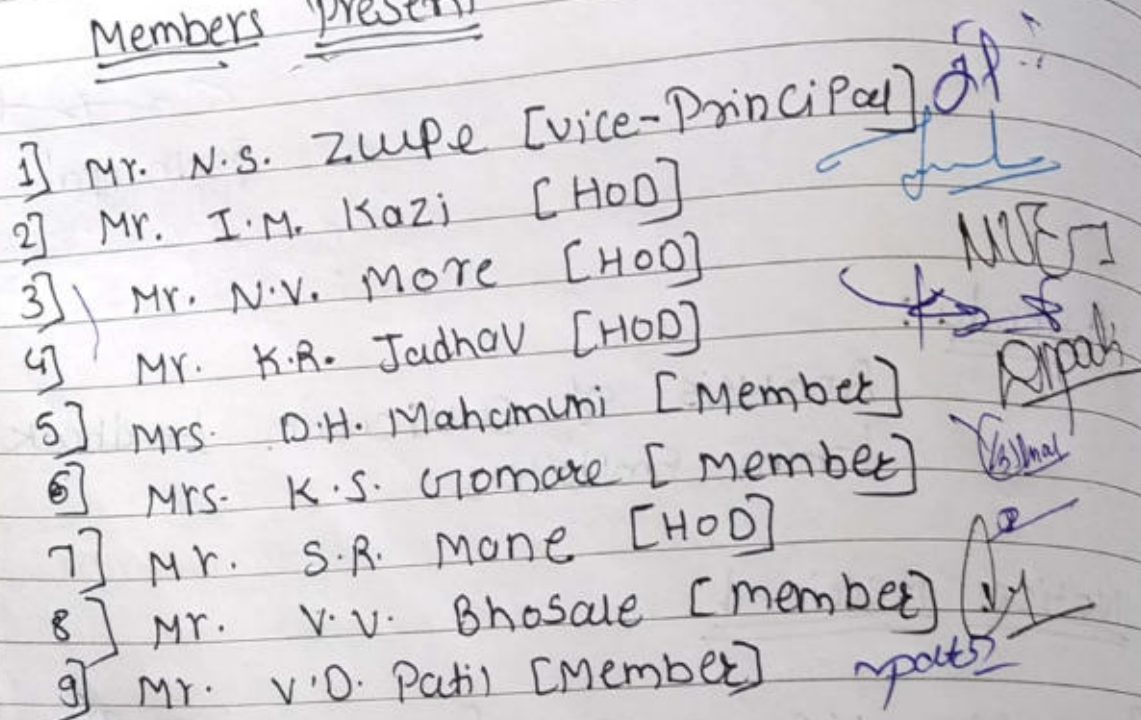 Members Present
1] Mr. N.S. Zulpe [Vice-Principal]
2] Mr. I.M. Kazi [HOD]
3] Mr. N.V. More [HOD]
4] Mr. K.R. Jadhav [HOD]
5] Mrs. D.H. Mahamuni [Member]
6] Mrs. K.S. Gomare [Member]
7] Mr. S.R. Mane [HOD]
8] Mr. V.V. Bhosale [Member]
9] Mr. V.D. Patil [Member]